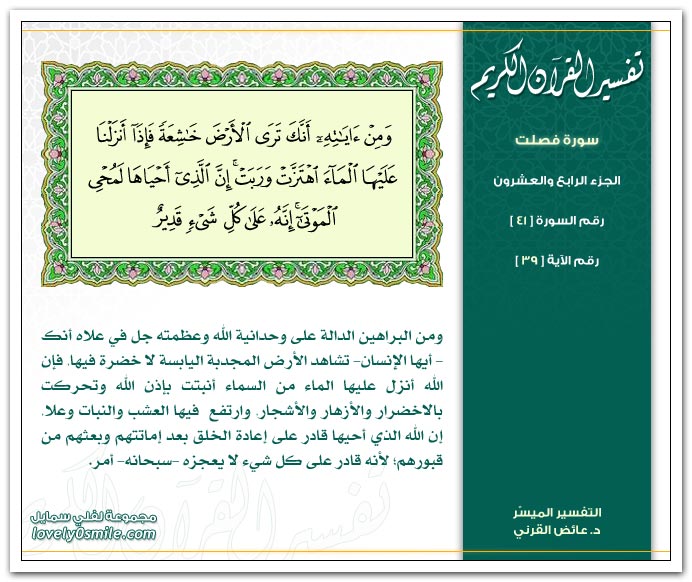 تفسير القرآن الكريم
سورة فصلت
الجزء الرابع والعشرون
رقم السورة [ ٤١ ]
رقم الآية [ ٣٩ ]
وَمِنْ ءَايَـٰتِهِۦٓ أَنَّكَ تَرَى ٱلْأَرْضَ خَـٰشِعَةً فَإِذَآ أَنزَلْنَا
عَلَيْهَا ٱلْمَآءَ ٱهْتَزَّتْ وَرَبَتْ ۚ إِنَّ ٱلَّذِىٓ أَحْيَاهَا لَمُحْىِ
ٱلْمَوْتَىٰٓ ۚ إِنَّهُۥ عَلَىٰ كُلِّ شَىْءٍ قَدِيرٌ
ومن البراهين الدالة على وحدانية الله وعظمته جل في علاه أنك
- أيها الإنسان- تشاهد الأرض المجدبة اليابسة لا خضرة فيها، فإن
الله أنزل عليها الماء من السماء أنبتت بإذن الله وتحركت
بالاخضرار والأزهار والأشجار، وارتفع فيها العشب والنبات وعلا،
إن الله الذي أحيها قادر على إعادة الخلق بعد إماتتهم وبعثهم من
قبورهم؛ لأنه قادر على كل شيء لا يعجزه -سبحانه- أمر.
التفسير الميسّر
د. عائض القرني
مجموعة لفلي سمايل
lovely0smile.com